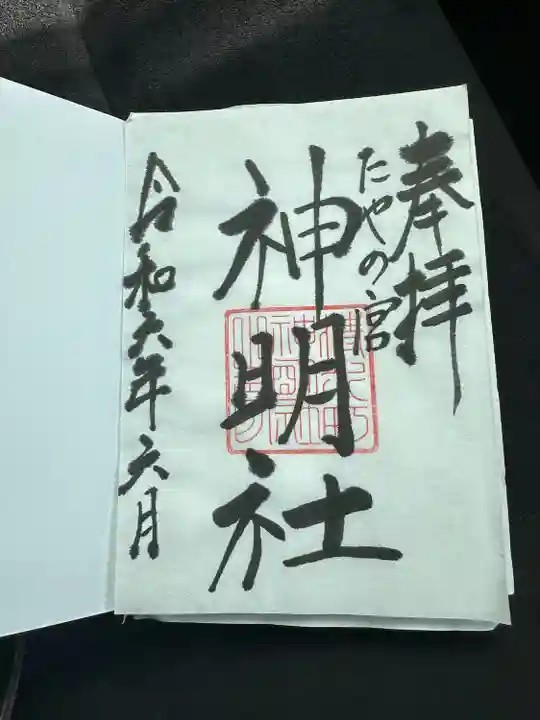 奉拝
たやの宮
神明社
令和六年六月